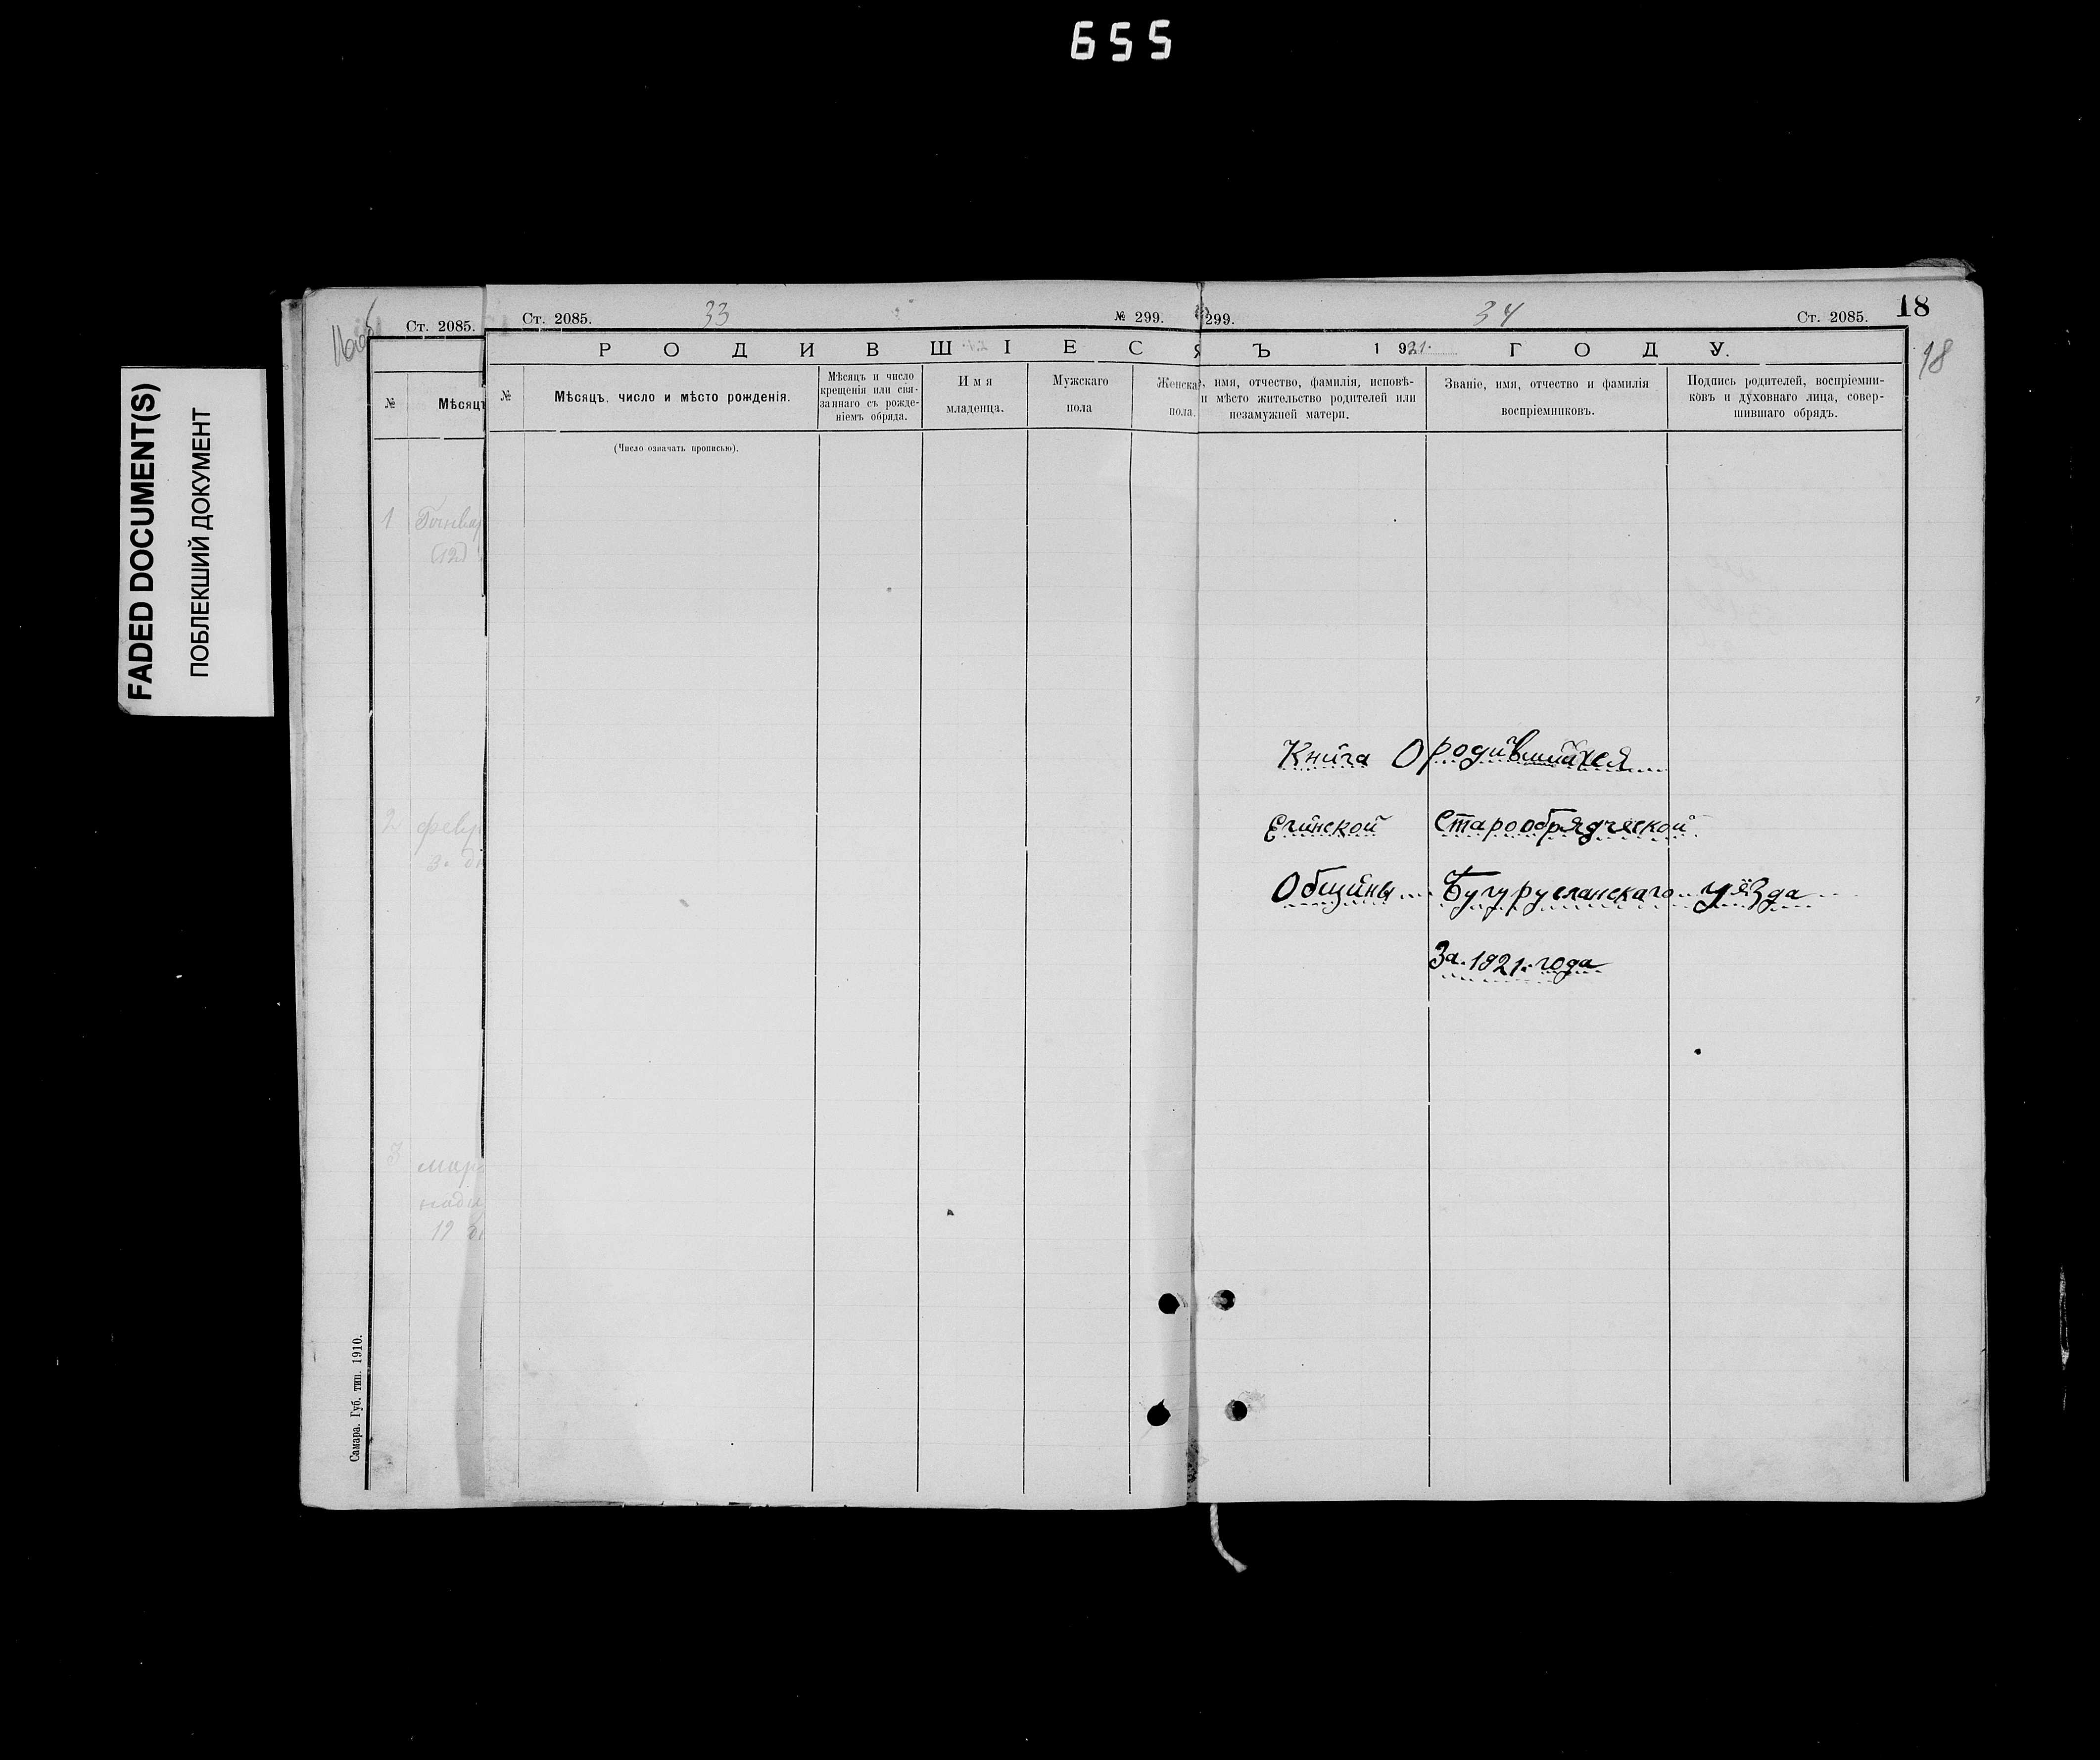 655
FADED DOCUMENT(S)
ПОБЛЕКШИЙ ДОКУМЕНТ
Ст. 2085.
№
Мѣсяцъ
1
(12)
2 февр
3
мар
19
Самара. Губ. тип. 1910.
Ст. 2085. 33 № 299.
299. 34 Ст. 2085. 18
18
РОДИВШІЕСЯ
Ъ 1921 ГОДУ.
№
Мѣсяцъ, число и мѣсто рожденія.
(Число означать прописью).
Мѣсяцъ и число
крещенія или свя-
заннаго съ рожде-
ніемъ обряда.
Имя
младенца.
Мужскаго
пола
Женска
пола.
, имя, отчество, фамилія, исповѣ-
и мѣсто жительство родителей или
незамужней матери.
Званіе, имя, отчество и фамилія
воспріемниковъ.
Подпись родителей, воспріемни-
ковъ и духовнаго лица, совер-
шившаго обрядъ.
Книга О родившихся
Егинской Старообрядческой
Общины Бугурусланскаго уѣзда
За 1921. года